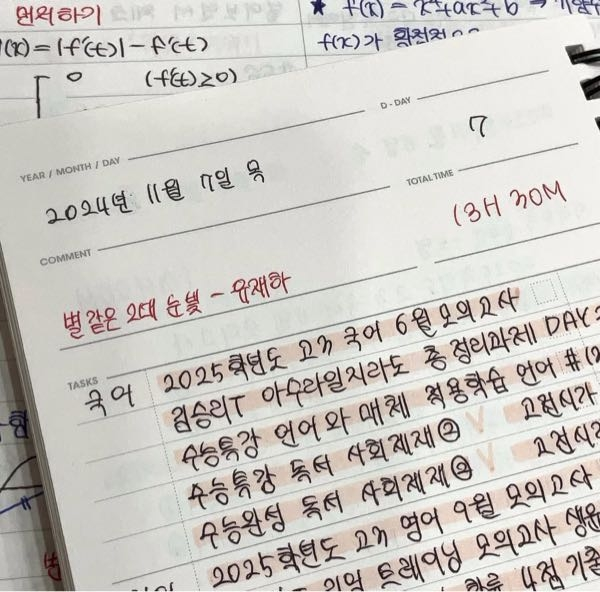 열외하기
f(x) = x⁴+ax²+b ⇒
(x) = |f'(t)| - f'(t)
f(x)가
0 (f'(t)≥0)
D - DAY
YEAR / MONTH / DAY
7
2024년 11월 7일 목
TOTAL TIME
13H 30M
COMMENT
별같은 그대 눈빛 - 유재하
TASKS
국어
2025학년도 고3 국어 6월 모의고사
김승리T 아수라 일지라도 총정리과제 DAY
수능특강 언어와 매체 적용학습 언어 #12
수능특강 독서 사회제재 ② 고전시가
수능특강 독서 사회제재 ② 고전시가
수능완성 독서 사회제재
2025학년도 고3 영어 9월 모의고사
기업 트레이닝 모의고사 생윤
4점 기출